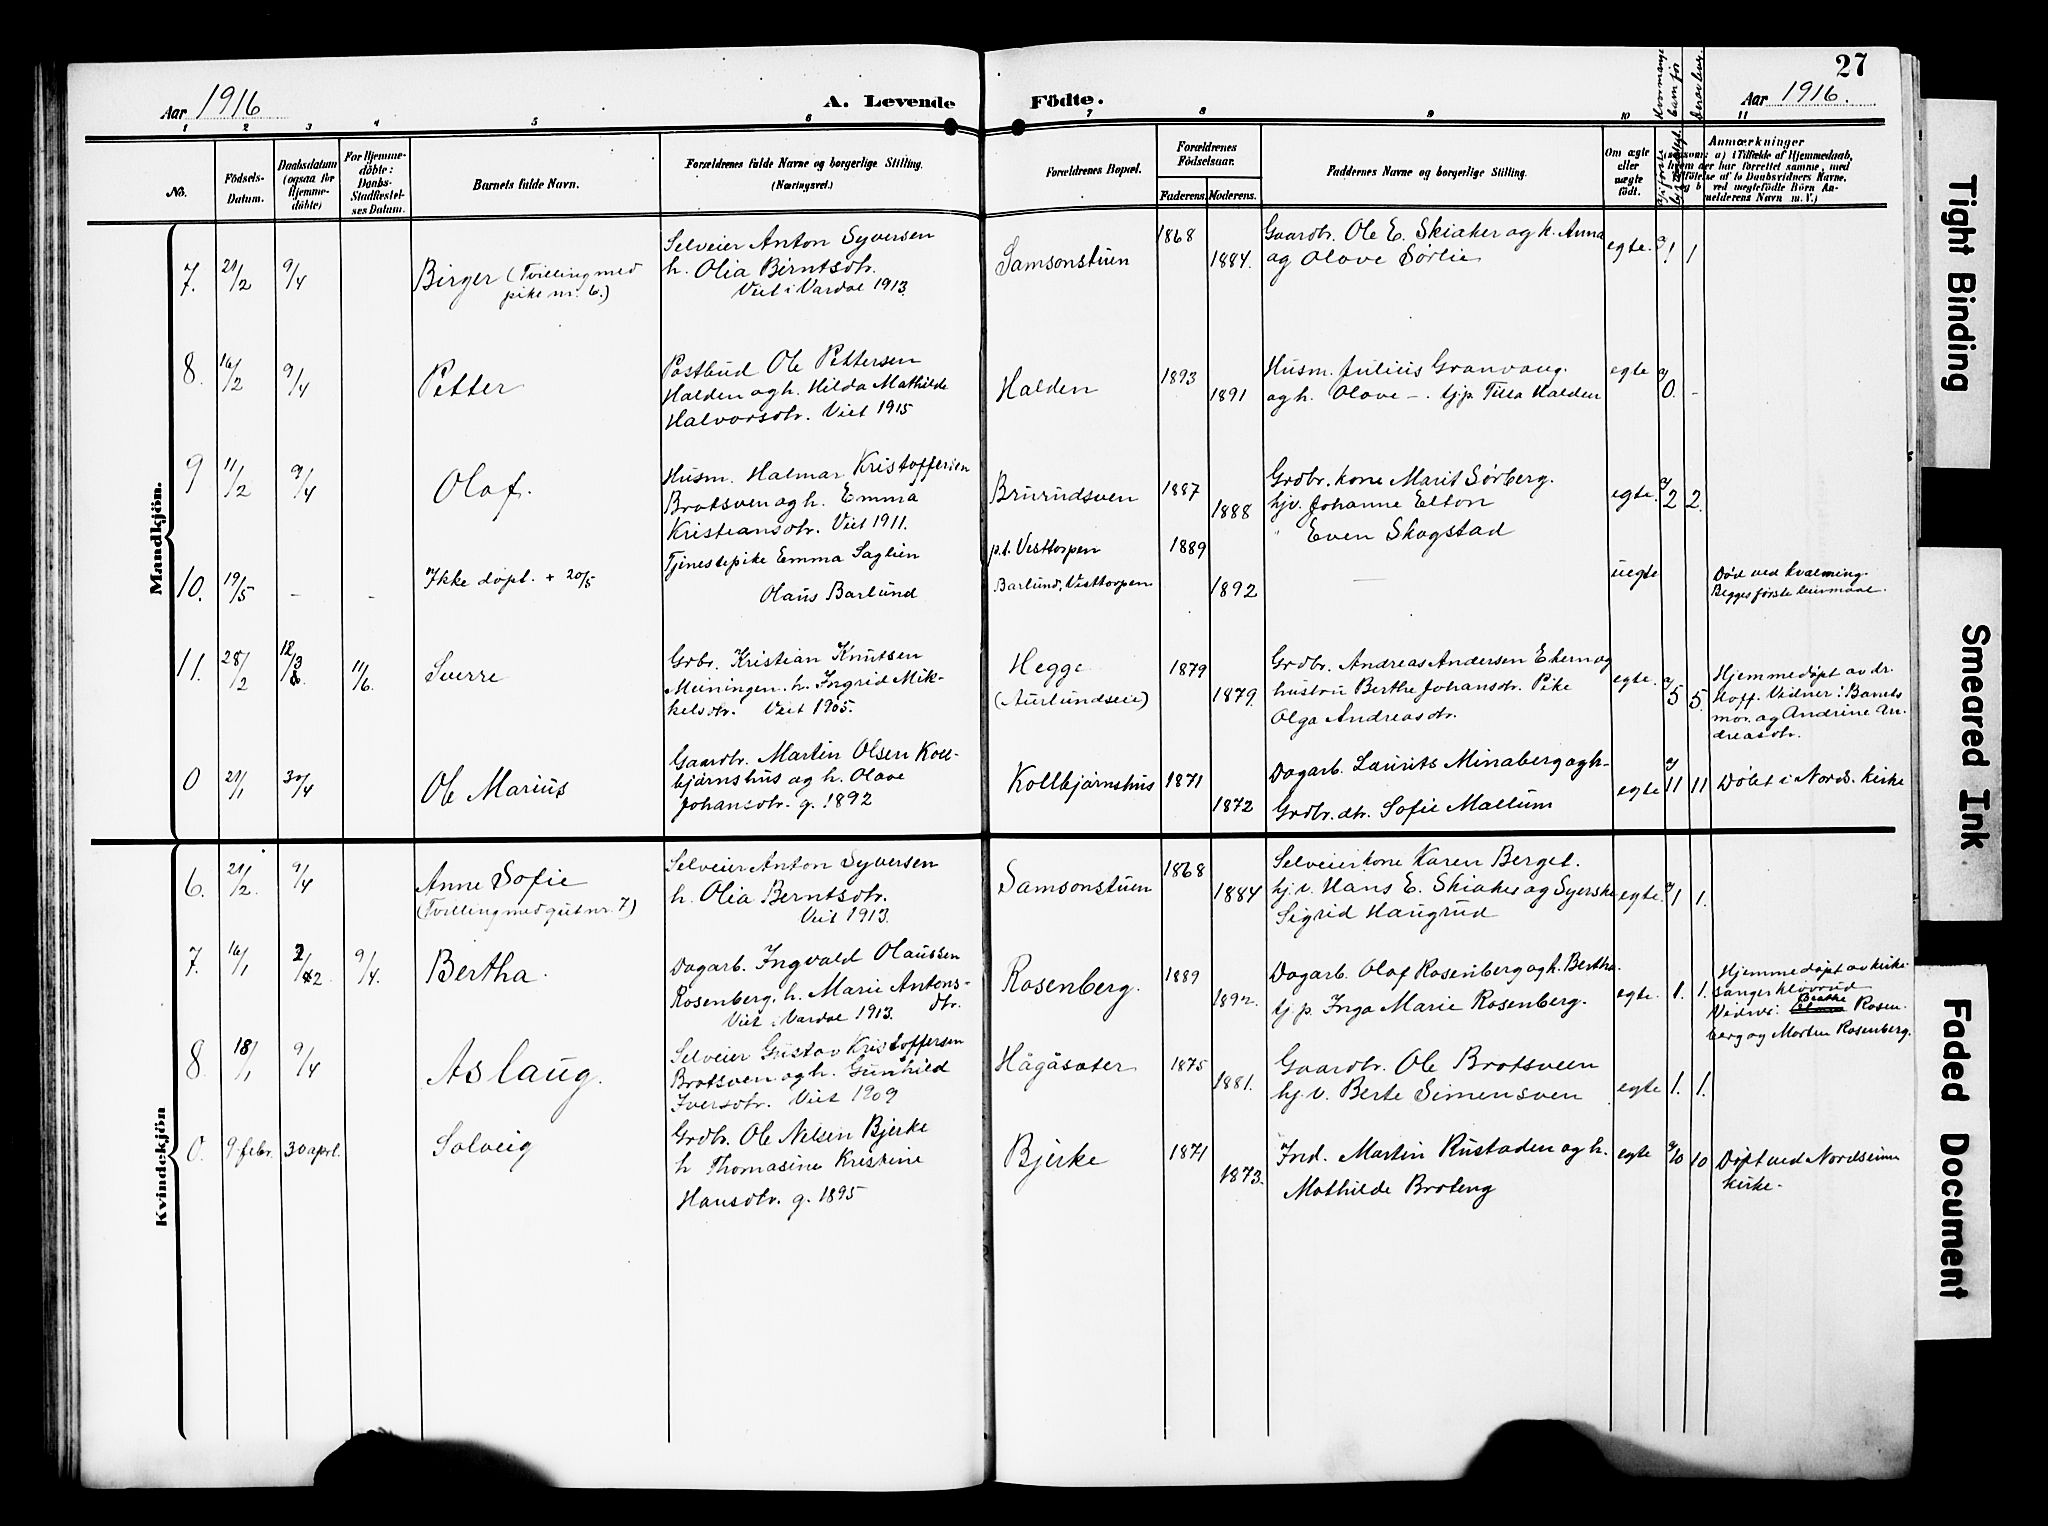 27
Aar 1916
A. Levende Födte.
Aar 1916.
1 2 3 4 5 6 7 8 9 10 11
No.
Födsels-
Datum.
Daabsdatum
(ogsaa for
Hjemme-
döbte)
For Hjemme-
döbte:
Daabs-
Stadfæstel-
ses Datum.
Barnets fulde Navn.
Forældrenes fulde Navne og borgerlige Stilling.
(Næringsvei.)
Forældrenes Bopæl.
Forældrenes
Födselsaar.
Faderens. Moderens.
Faddernes Navne og borgerlige Stilling.
Om ægte
eller
uægte
födt.
Hvormange
barn før
derav lever.
Anmærkninger
(saasom: a) i Tilfælde af Hjemmedaab,
hvem der har forrettet samme, med
Tilföielse af to Daabsvidners Navne,
og b) ved uægtefödte Börn An-
melderens Navn m. V.)
Mandkjön.
7. 21/2 9/4
Birger (Tvilling med
pike nr. 6.)
Selveier Anton Syversen
h. Olia Berntsdtr.
Viet i Vardal 1913.
Samsonstuen
1868
1884.
Gaardbr. Ole E. Skiaker og h. Anna
og Olave Sørlie
egte. 1 1
8. 16/2 9/4
Petter
Postbud Ole Pettersen
Halden og h. Hilda Mathilde
Halvorsdtr. Viet 1915
Halden
1893
1891
Husm. Julius Granvang.
og h. Olave —. tj.p. Tilla Halden
egte 0. -
9 11/2 9/4
Olaf.
Husm. Halmar Kristoffersen
Brotsven og h. Emma
Kristiansdtr. Viet 1911.
Brurudsven
1887
1888
Grdbr. kone Marit Sørberg.
hjv. Johanne Elton
" Even Skogstad
egte. 2 2.
10. 19/5 - -
Ikke døpt. + 20/5
Tjenestepike Emma Saglien
Olaus Barlund
p.t. Vesttorpen
Barlund, Vesttorpen
1889
1892
—
uegte
Død ved kvælning.
Begges første leiermaal.
11. 28/2 12/3 11/6.
Sverre
Grbr. Kristian Knutsen
Meiningen. h. Ingrid Mik-
kelsdtr. Viet 1905.
Hegge
(Aurlundseie)
1879
1879.
Grdbr. Andreas Andersen Ekern og
hustru Berthe Johansdtr. Pike
Olga Andreasdtr.
egte. 5 5.
Hjemmedøpt av dr.
Hoff. Vidner: Barnets
mor. og Andrine An-
dreasdtr.
0 21/1 30/4
Ole Marius
Gaardbr. Martin Olsen Koll-
bjørnshus og h. Olave
Johansdtr. g. 1892
Kollbjørnshus
1871
1872
Dagarb. Laurits Minaberg og h-
Grdbr. dtr. Sofie Mællum
egte 11 11
Døbt i Nords. Kirke
Kvindekjön
6. 21/2. 9/4
Anne Sofie
(Tvilling med gut nr. 7)
Selveier Anton Syversen
h. Olia Berntsdtr.
Viet 1913.
Samsonstuen
1868
1884
Selveierkone Karen Berget.
hj.v. Hans E. Skiaker og Syerske
Sigrid Haugrud
egte. 1 1.
7. 16/1 2/2. 9/4.
Bertha.
Dagarb. Ingvald Olaussen
Rosenberg. h. Marie Antons-
dtr.
Viet i Vardal 1913.
Rosenberg.
1889
1892.
Dagarb. Olaf Rosenberg og h. Bertha.
tj.p. Inga Marie Rosenberg.
egte. 1. 1.
Hjemmedøpt av kirke-
sanger Kløvrud
Vidner: Berthe Rosen-
berg og Morten Rosenberg.
8. 18/1 9/4
Aslaug.
Selveier Gustav Kristoffersen
Brotsven og h. Gunhild
Iversdtr. Viet 1909
Hågåsæter
1875
1881.
Gaardbr. Ole Brotsveen
hj.v. Berte Simensven
egte 1. 1.
0. 9 febr. 30 april.
Solveig
Grdbr. Ole Nelsen Bjerke
h Thomasine Kristine
Hansdtr. g. 1895
Bjerke
1871
1873.
Ind. Martin Rustaden og h.
Mathilde Broteng
egte 10 10
Døpt ved Nordsinni
kirke.
Tight Binding
Smeared Ink
Faded Document